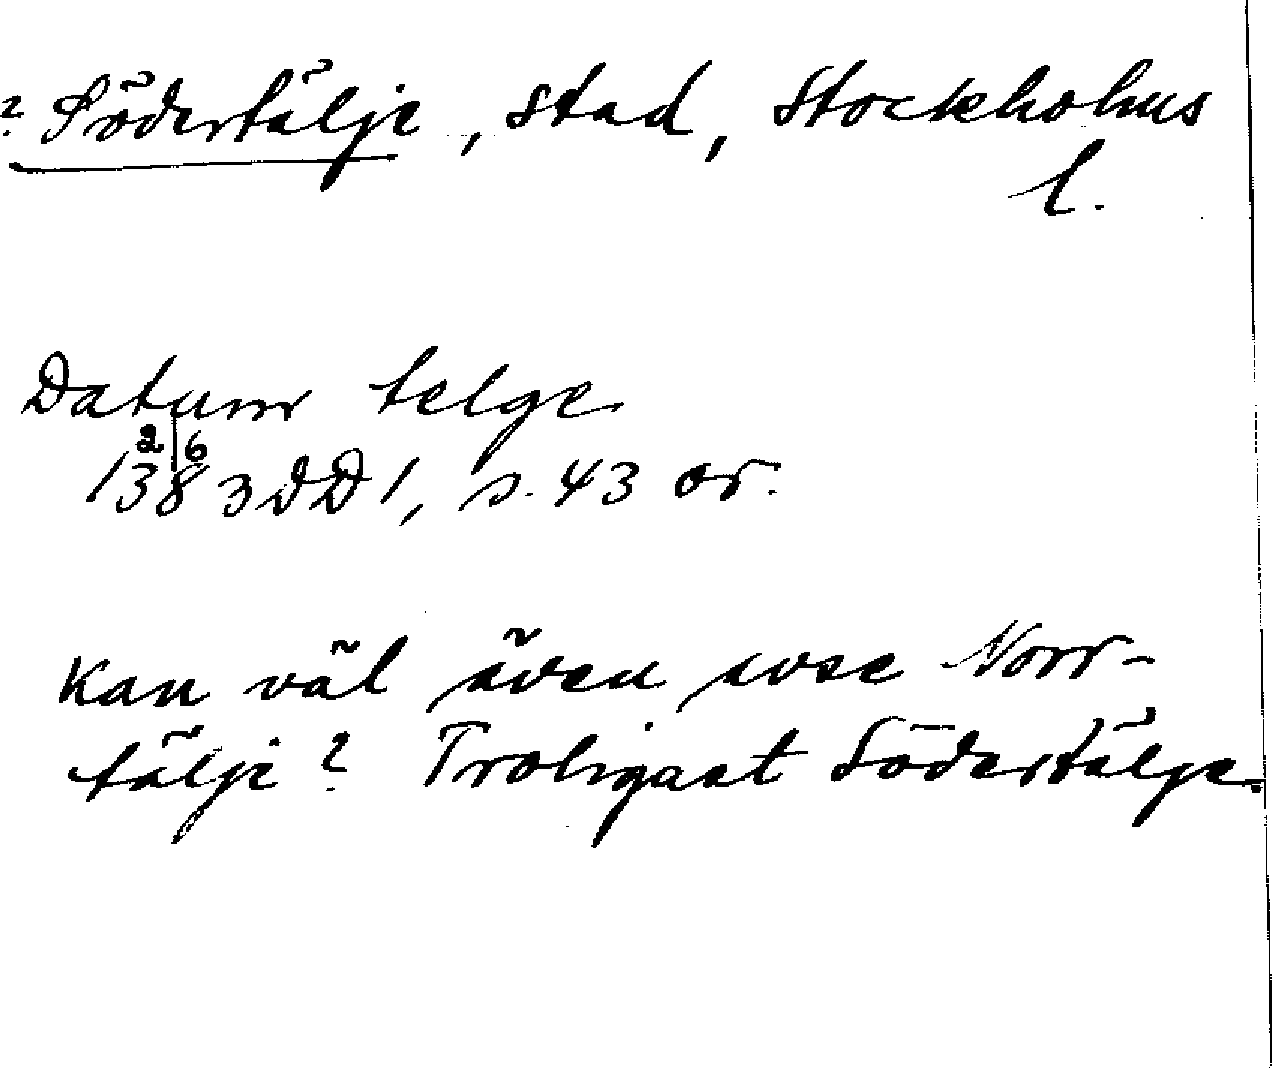 ? Södertälje, stad, Stockholms
l.
Datum telge
2/6
1383 DD 1, s. 43 or.
Kan väl även avse Norr-
tälje? Troligast Södertälje.